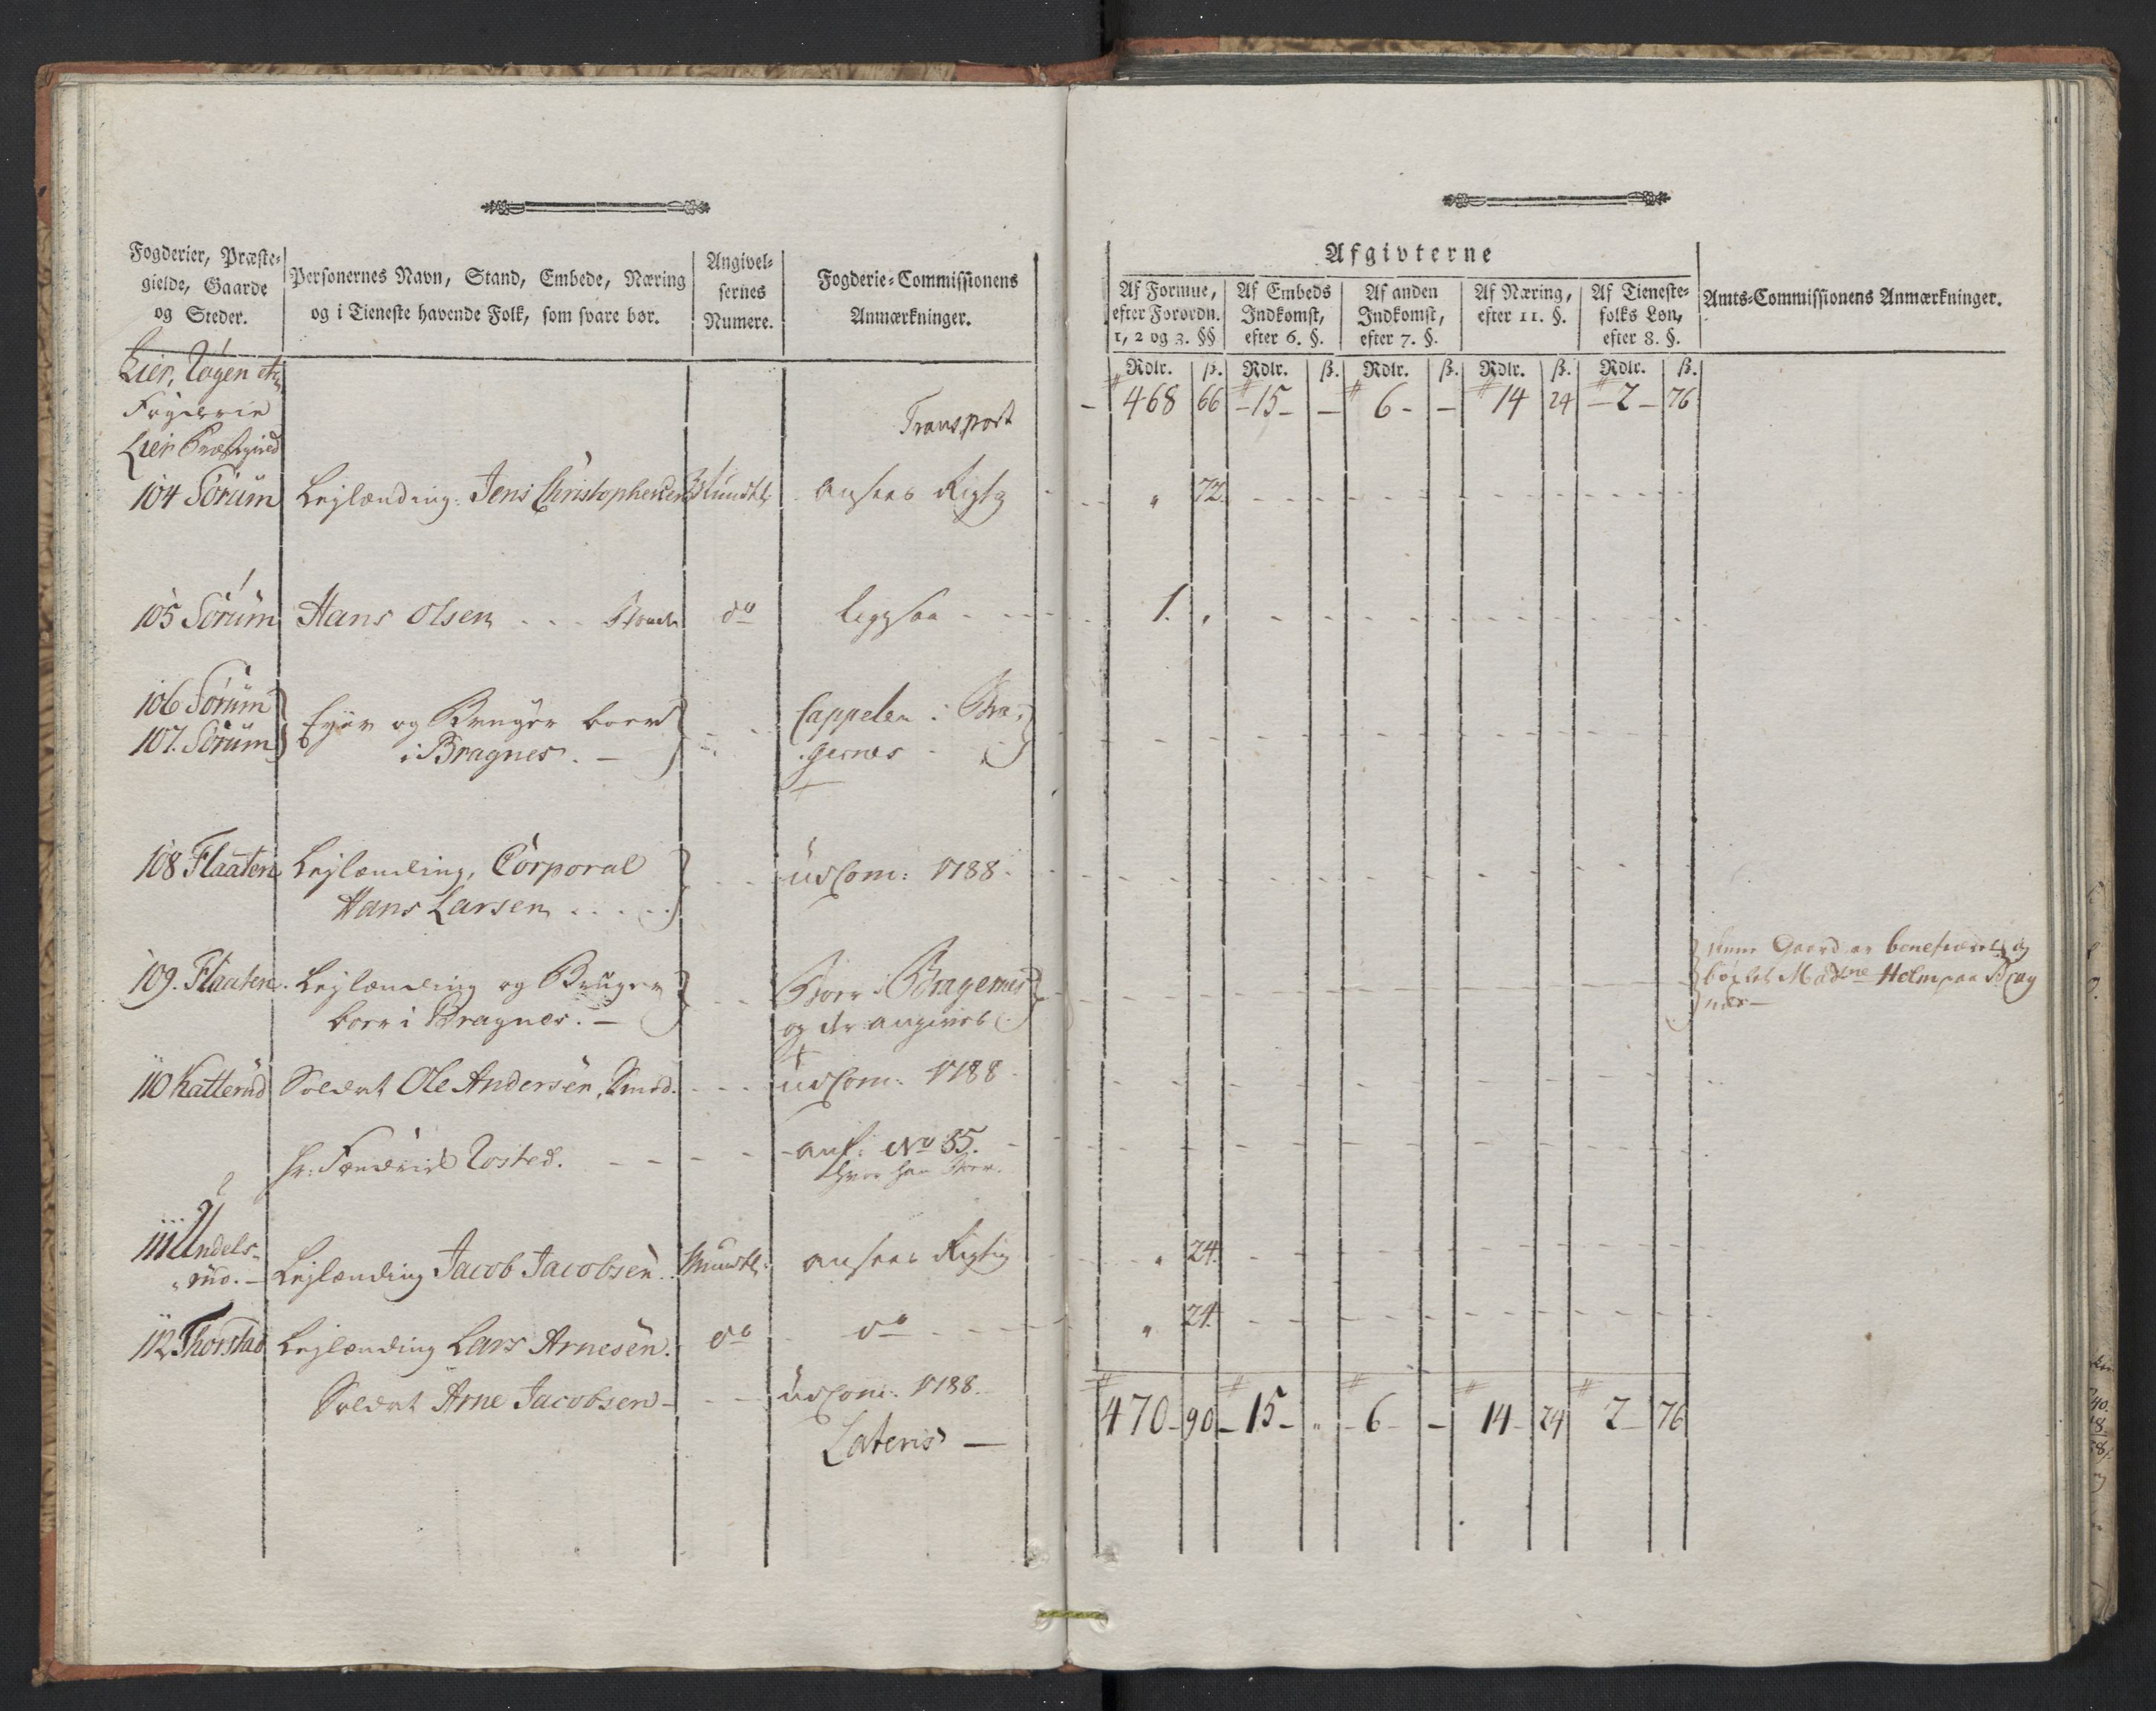 Fogderier, Præste-
gielde, Gaarde
og Steder.
Personernes Navn, Stand, Embede, Næring
og i Tieneste havende Folk, som svare bør.
Angivel-
sernes
Numere.
Fogderie-Commissionens
Anmærkninger.
Afgivterne
Af Formue,
efter Forordn.
1, 2 og 3. §§
Af Embeds
Indkomst,
efter 6. §.
Af anden
Indkomst,
efter 7. §.
Af Næring,
efter 11. §.
Af Tieneste-
folks Løn,
efter 8. §.
Amts-Commissionens Anmærkninger.
Rdlr. ß. Rdlr. ß. Rdlr. ß. Rdlr. ß. Rdlr. ß.
Lier, Røgen etc
Fogderie
Lier Præstegield
Transport 468 66 15 - 6 - 14 24 2 76
104 Sørum Lejlænding Jens Christophersen Mundtl ansees Rigtig " 72.
105 Sørum Hans Olsen do ligesaa 1. "
106 Sørum
107. Sørum
Ejer og Bruger boer
i Bragnes. -
Cappelen i Bra-
gernes
108 Flaaten Lejlænding, Corporal
Hans Larsen
udCom: 1788.
109. Flaaten. Lejlænding og Bruger
boer i Bragnes. -
Boer i Bragernes
og der angivet
denne Gaard er beneficeret og
bøxlet Madme Holm paa Brag
næs -
110 Katterud Soldat Ole Andersen, Smed. udCom: 1788
hr: Fendrich Rosted. anf: No 35.
hvor han boer.
111 Undels-
rud. - Lejlænding Jacob Jacobsen. Mundtl: ansees Rigtig " 24.
112 Thorstad Lejlænding Lars Arnesen. do do " 24.
Soldat Arne Jacobsen - udCom: 1788.
Lateris - 470 - 90 - 15 - " 6 - 14 - 24 2 - 76